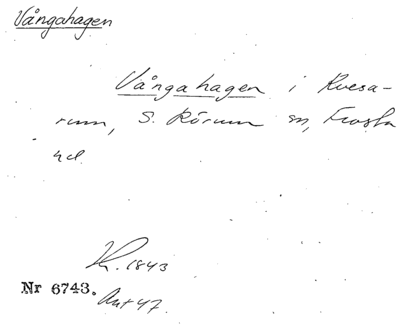 Vångahagen
Vångahagen i Kvesa-
rum, S. Rörum sn, Frosta
hd
Kr. 1843
Nr 6743. Ant 47.